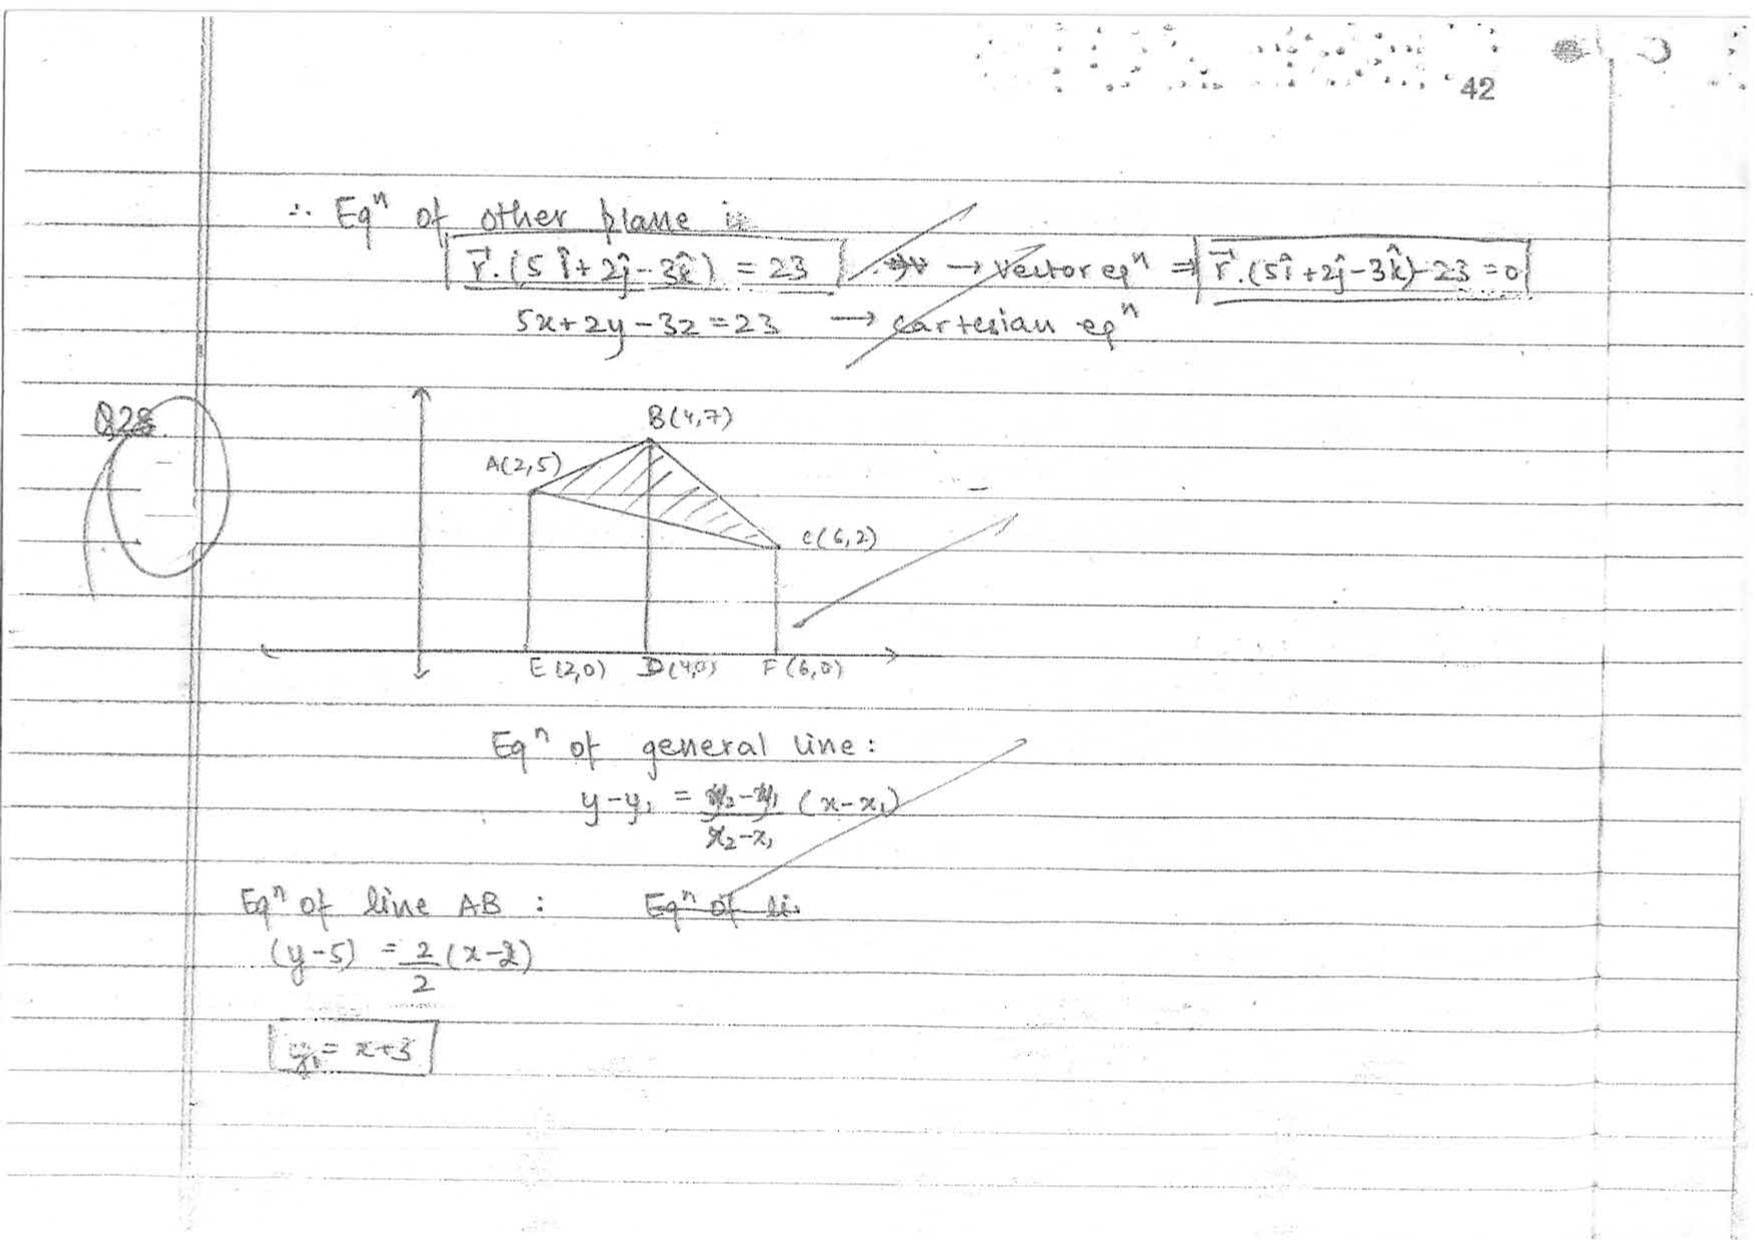 42
∴ Eqⁿ of other plane is
r⃗.(5î+2ĵ-3k̂) = 23 → Vector eqⁿ ⇒ r⃗.(5î+2ĵ-3k̂)-23=0
5x+2y-3z=23 → cartesian eqⁿ
Q28.
B(4,7)
A(2,5)
C(6,2)
E(2,0) D(4,0) F(6,0)
Eqⁿ of general line:
y-y₁ = y₂-y₁/x₂-x₁ (x-x₁)
Eqⁿ of line AB : Eqⁿ of li
(y-5) = 2/2 (x-2)
y₁= x+3